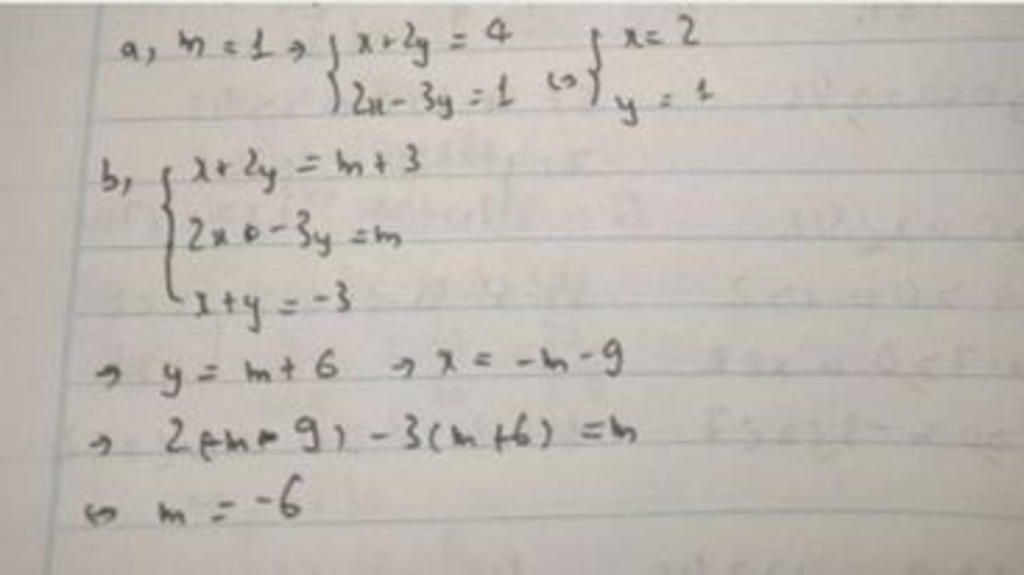 a, m = 1 → { x + 2y = 4 ⇔ { x = 2
2x - 3y = 1 y = 1
b, { x + 2y = m + 3
2x - 3y = m
x + y = -3
→ y = m + 6 → x = -m - 9
→ 2(-m - 9) - 3(m + 6) = m
⇔ m = -6